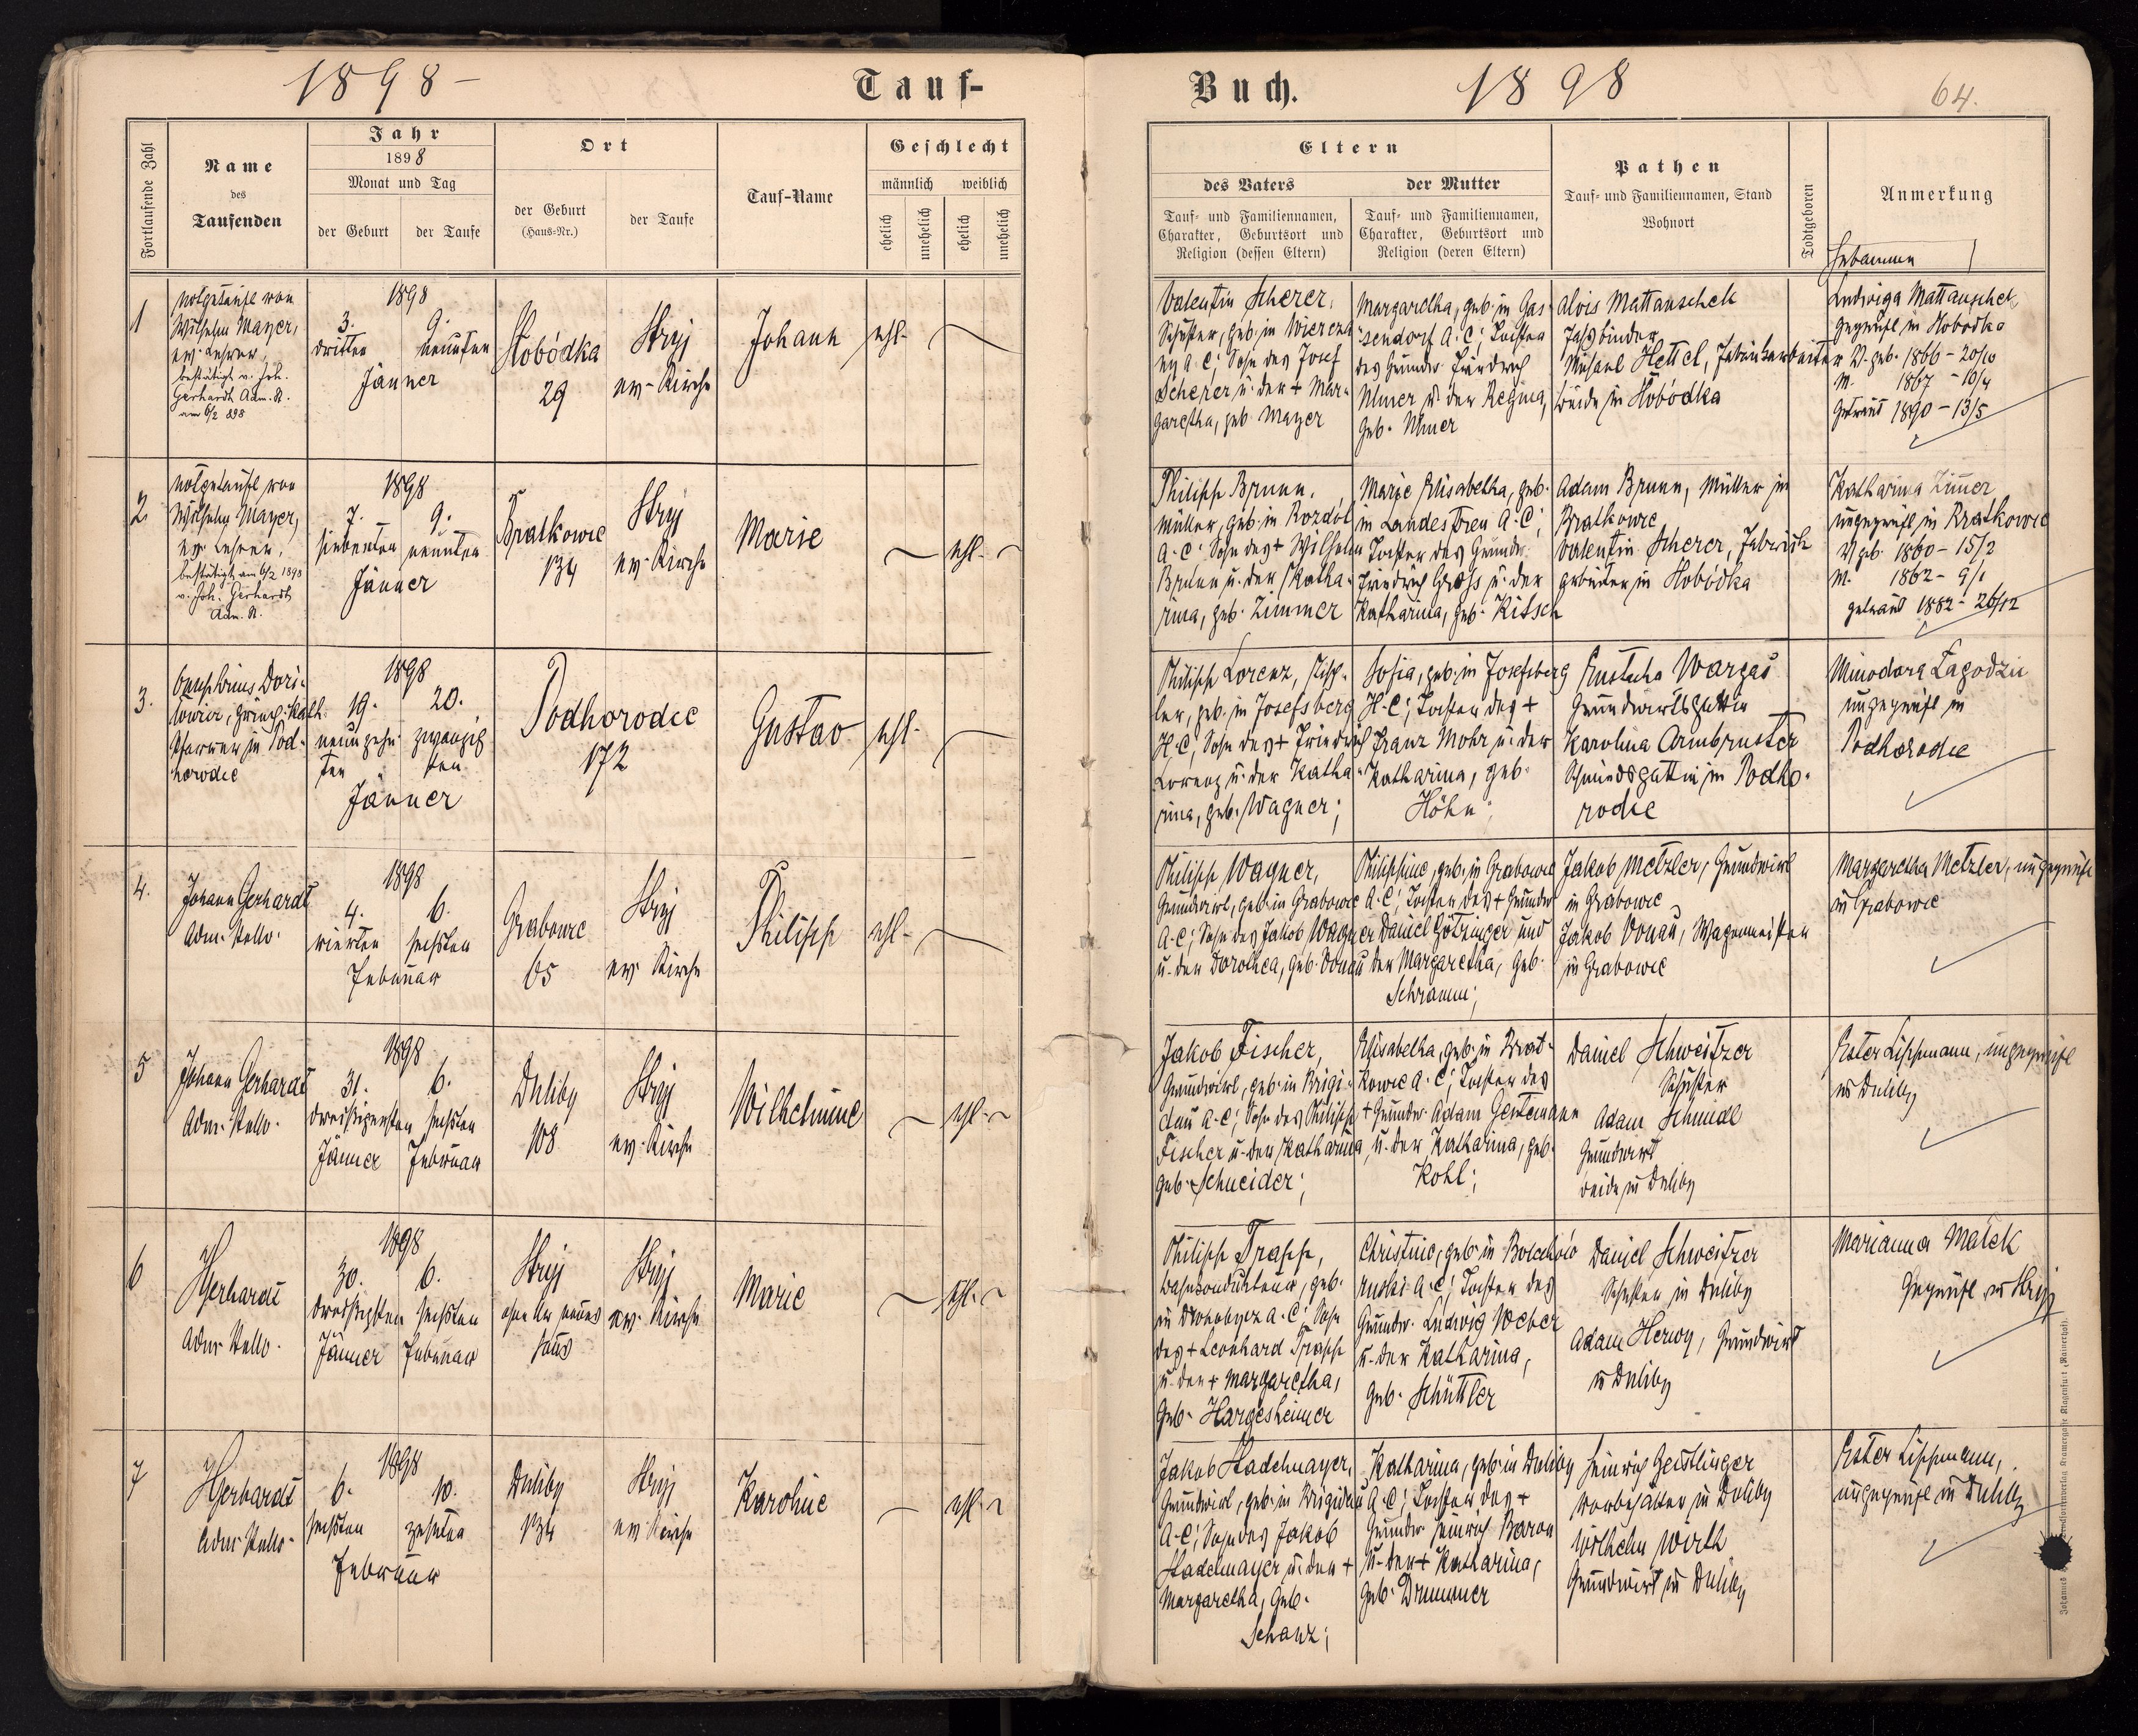 1898 –
Tauf-
Buch.
1898
64.
Fortlaufende Zahl
Name
des
Taufenden
Jahr
1898
Monat und Tag
der Geburt
der Taufe
Ort
der Geburt
(Haus-Nr.)
der Taufe
Tauf-Name
Geschlecht
männlich
weiblich
ehelich
unehelich
ehelich
unehelich
Eltern
des Vaters
Tauf- und Familiennamen,
Charakter, Geburtsort und
Religion (dessen Eltern)
der Mutter
Tauf- und Familiennamen,
Charakter, Geburtsort und
Religion (deren Eltern)
Pathen
Tauf- und Familiennamen, Stand
Wohnort
Todtgeboren
Anmerkung
Hebamme
1
notgetauft von
Wilhelm Mayer,
ev. Lehrer,
bestätigt v. Joh.
Gerhardt Adm. St.
am 6/2 898
1898
3. 9.
dritten neunten
Jänner
Slobódka
29
Stryj
ev. Kirche
Johann
ehl.
Valentin Scherer,
Schuster, geb. in
ny A. C; Sohn des Josef
Scherer u. der + Mar-
garetha, geb. Mayer
Margaretha, geb. in Gas-
sendorf A. C; Tochter
des Grundw. Friedrich
Ulmer u. der Regina,
geb. Ulmer
Alois Mattauschek
Fassbinder
Michael Hettel, Fabriksarbeiter
beide in Slobódka
Ludwiga Mattauschek,
geprüft in Slobodka
V. geb. 1866 – 20/10
M. 1867 – 16/4
Getraut 1890 – 13/5
2
notgetauft von
Wilhelm Mayer,
ev. Lehrer,
bestätigt am 6/2 1898
v. Joh. Gerhardt
Adm. St.
1898
7. 9.
siebenten neunten
Jänner
Bratkowce
134
Stryj
ev. Kirche
Marie
ehl.
Philipp Brunn,
Müller, geb. in Rozdol
A. C; Sohn des + Wilhelm
Brunn u. der Katha-
rina, geb. Zimmer
Marie Elisabetha, geb.
in Landestreu A. C;
Tochter des Grundw.
Friedrich Gross u. der
Katharina, geb. Kitsch
Adam Brunn, Müller in
Bratkowce
Valentin Scherer, Fabriks-
arbeiter in Slobódka
Katharina Zimmer
ungeprüft in Bratkowce
V. geb. 1860 – 15/2
M. 1862 – 9/1
getraut 1882 – 26/12
3.
Onuphrius Dori-
, griech. kath.
Pfarrer in Pod-
horodce
1898
19. 20.
neunzehn- zwanzig-
ten sten
Jänner
Podhorodce
172
Gustav
ehl.
Philipp Lorenz, Tisch-
ler, geb. in Josefsberg
H. C; Sohn des + Friedrich
Lorenz u. der Katha-
rina, geb. Wagner;
Sofia, geb. in Josefsberg
H. C; Tochter des +
Franz Mohr u. der
Katharina, geb.
Höhn;
Eustacha Wargas
Grundwirtsgattin
Karolina Armbruster
Schmiedsgattin in Podho-
rodce
Minodora Łagodzic
ungeprüft in
Podhorodce
4.
Johann Gerhardt
Adm. Stellv.
1898
4. 6.
vierten sechsten
Februar
Grabowce
65
Stryj
ev. Kirche
Philipp
ehl.
Philipp Wagner,
Grundwirt, geb. in Grabowce
A. C; Sohn des Jakob Wagner
u. der Dorothea, geb. Donau
Philippine, geb. in Grabowce
A. C; Tochter des + Grundw.
Daniel Götzinger und
der Margaretha, geb.
Schramm;
Jakob Metzler, Grundwirt
in Grabowce
Jakob Donau, Wagenmeister
in Grabowce
Margaretha Metzler, ungeprüft
in Grabowce
5
Johann Gerhardt
Adm. Stellv.
1898
31. 6.
sechsten
Jänner Februar
Duliby
108
Stryj
ev. Kirche
Wilhelmine
ehl.
Jakob Fischer,
Grundwirt, geb. in Brigi-
dau A. C; Sohn des Philipp
Fischer u. der Katharina,
geb. Schneider;
Elisabetha, geb. in Brat-
kowce A. C; Tochter des
+ Grundw. Adam Gentemann
u. der Katharina, geb.
Kohl;
Daniel Schweitzer
Schuster
Adam Schmidt
Grundwirt
beide in Duliby
Ester Lippmann, ungeprüft
in Duliby
6
JGerhardt
Adm. Stellv.
1898
30. 6.
dreissigsten sechsten
Jänner Februar
Stryj
ohne Nr neues
Haus
Stryj
ev. Kirche
Marie
ehl.
Philipp Trapp,
Bahnkondukteur, geb.
in Drohobycz A. C; Sohn
des + Leonhard Trapp
u. der + Margaretha,
geb. Hargesheimer
Christine, geb. in Bolechów
ruski A. C; Tochter des
Grundw. Ludwig Weber
u. der Katharina,
geb. Schüttler
Daniel Schweitzer
Schuster in Duliby
Adam Herwy, Grundwirt
in Duliby
Marianna Małek
geprüft in Stryj
7
JGerhardt
Adm. Stellv.
1898
6. 10.
sechsten zehnten
Februar
Duliby
134
Stryj
ev. Kirche
Karoline
ehl.
Jakob Stadelmayer,
Grundwirt, geb. in Brigidau
A. C; Sohn des Jakob
Stadelmayer u. der +
Margaretha, geb.
Schanz;
Katharina, geb. in Duliby
A. C; Tochter des +
Grundw. Heinrich Baron
u. der + Katharina,
geb. Drummer
Heinrich Geistlinger
in Duliby
Wilhelm Wirth
Grundwirt in Duliby
Ester Lippmann,
ungeprüft in Duliby